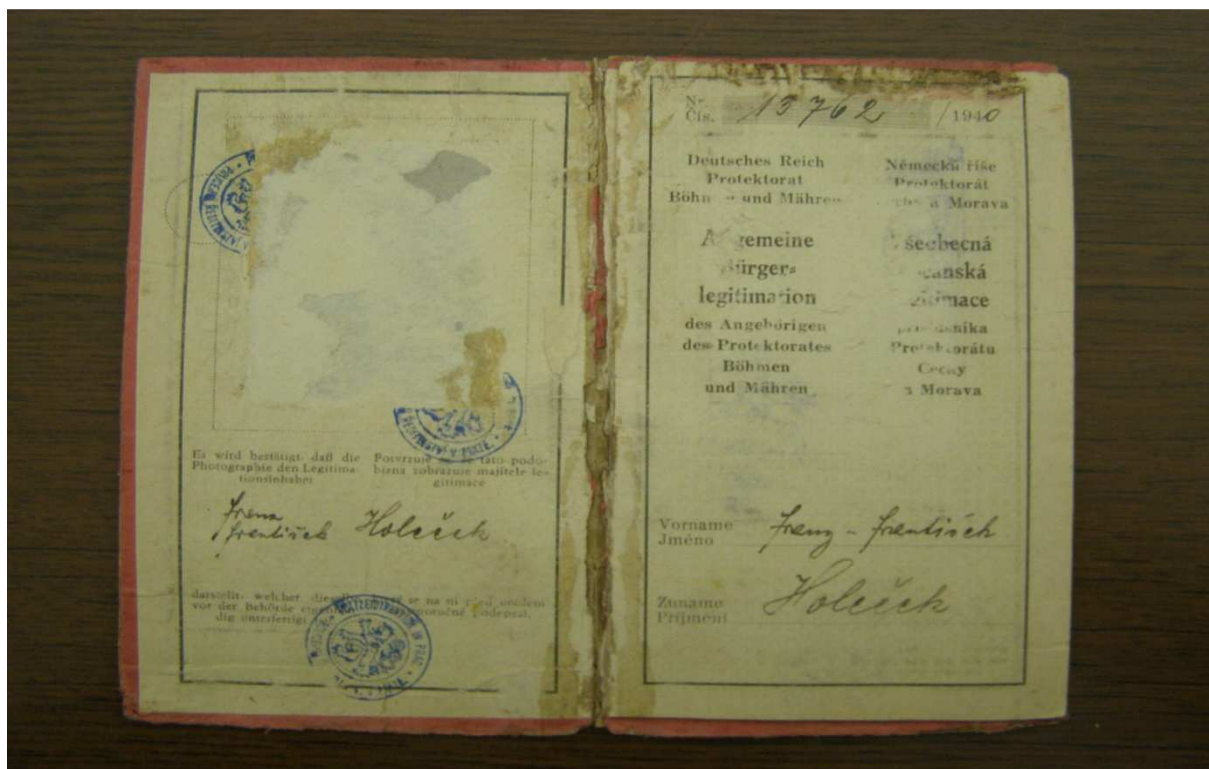 Es wird bestätigt, daß die
Photographie den Legitima-
tionsinhaber
Potvrzuje se, že tato podo-
bizna zobrazuje majitele le-
gitimace
Franz
František Holeček
darstellt, welcher
vor der Behörde
dig unterfertigt
se na ni před úřadem
podepsal.
Nr.
Čís. 13762 /1940
Deutsches Reich
Protektorat
Böhmen und Mähren
Německá říše
Protektorát
a Morava
Allgemeine
Bürger-
legitimation
Všeobecná
občanská
legitimace
des Angehörigen
des Protektorates
Böhmen
und Mähren
příslušníka
Protektorátu
Čechy
a Morava
Vorname
Jméno Franz - František
Zuname
Příjmení Holeček